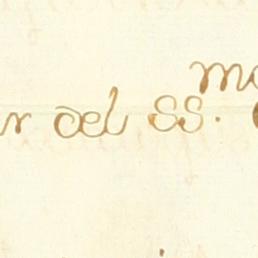 r del SS.mo